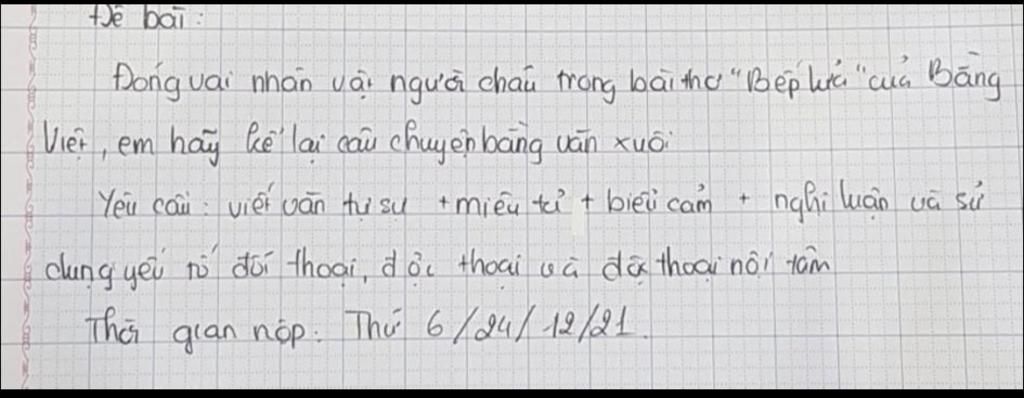 Đề bài:
Đóng vai nhân vật người cháu trong bài thơ "Bếp lửa" của Bằng
Việt, em hãy kể lại câu chuyện bằng văn xuôi
Yêu cầu: viết văn tự sự + miêu tả + biểu cảm + nghị luận và sử
dụng yếu tố đối thoại, độc thoại và độc thoại nội tâm
Thời gian nộp: Thứ 6/24/12/21.